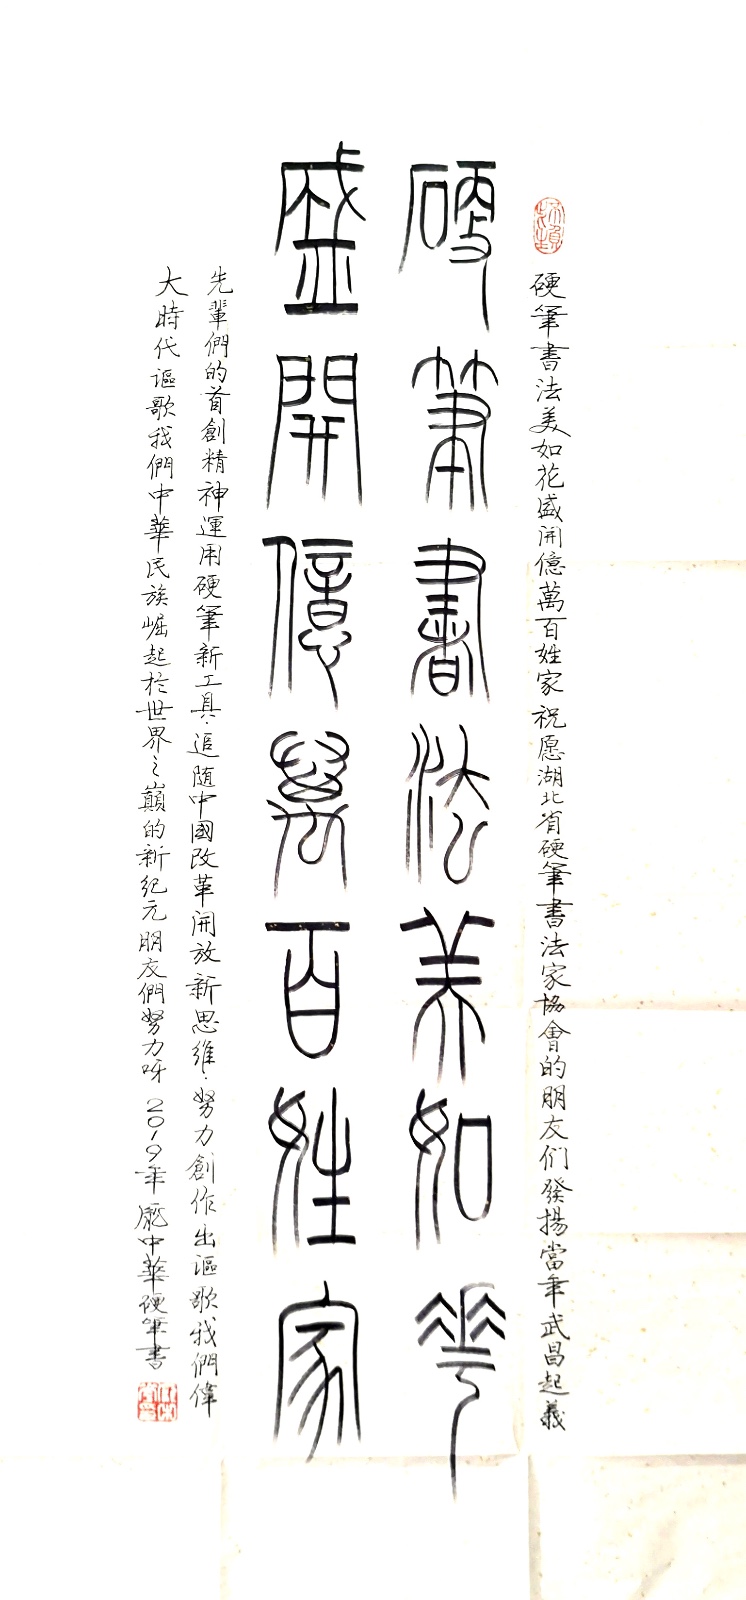 硬筆書法美如花盛開億萬百姓家祝愿湖北省硬筆書法家協會的朋友们發揚當年武昌起義
硬筆書法美如花
盛開億萬百姓家
先輩們的首創精神運用硬筆新工具追随中國改革開放新思維努力創作出謳歌我們偉
大時代謳歌我們中華民族崛起於世界之巔的新紀元朋友們努力呀2019年龐中華硬筆書